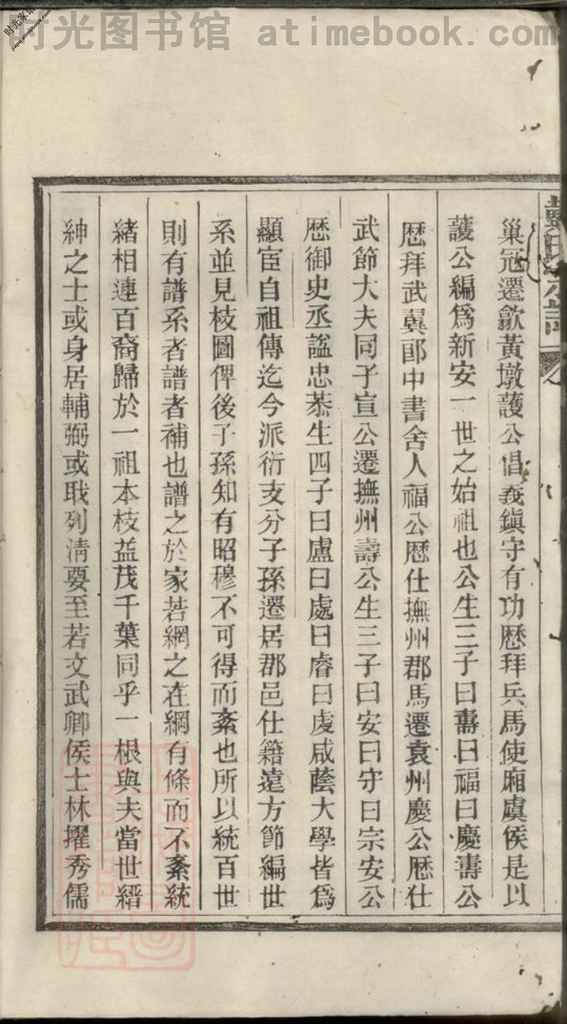 时光图书馆 atimebook.com
巢冠遷歙黃墩護公倡義鎮守有功歷拜兵馬使廂虞侯是以
護公編爲新安一世之始祖也公生三子曰壽曰福曰慶壽公
歷拜武翼郎中書舍人福公歷仕撫州郡馬遷袁州慶公歷仕
武節大夫同子宣公遷撫州壽公生三子曰安曰守曰宗安公
歷御史丞謚忠恭生四子曰盧曰處曰睿曰虔咸蔭大學皆爲
顯宦自祖傳迄今派衍支分子孫遷居郡邑仕籍遠方節編世
系並見枝圖俾後子孫知有昭穆不可得而紊也所以統百世
則有譜系者譜者補也譜之於家若網之在綱有條而不紊統
緒相連百裔歸於一祖本枝益茂千葉同乎一根與夫當世縉
紳之士或身居輔弼或職列清要至若文武卿侯士林擢秀儒